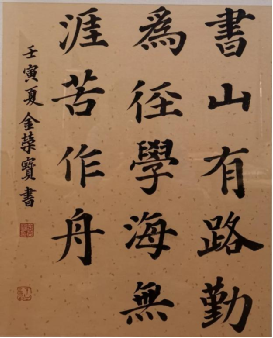 書山有路勤
為徑學海無
涯苦作舟
壬寅夏金榮寶書